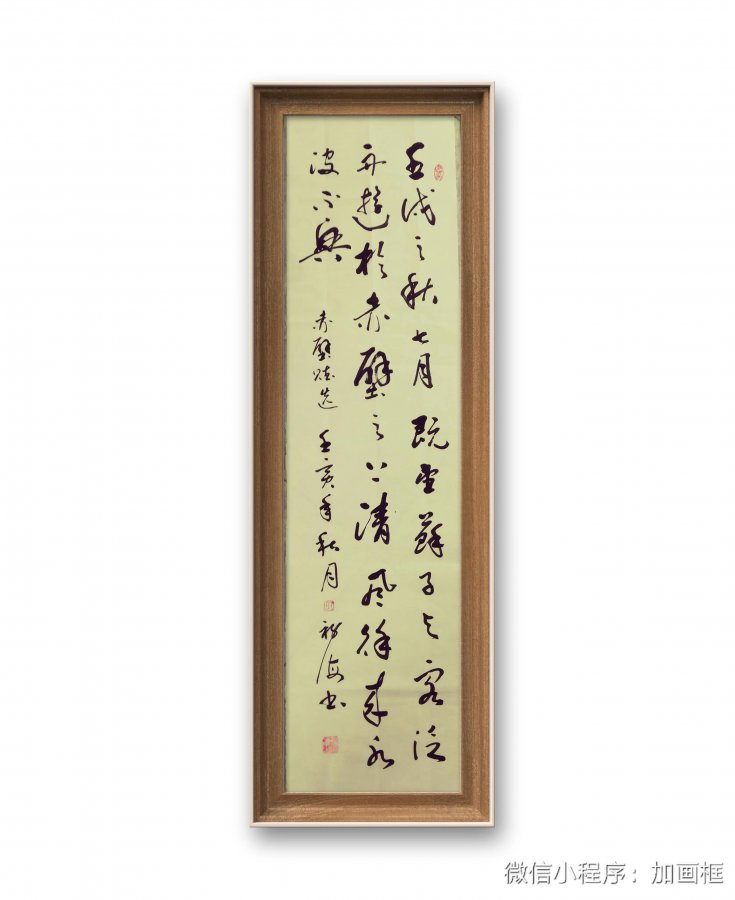 壬戌之秋七月既望蘇子与客泛
舟遊於赤壁之下清风徐来水
波不興 赤壁赋选 壬寅年秋月 海书
微信小程序：加画框